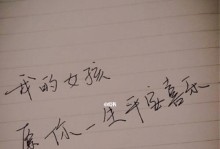 我的女孩
愿你一生平安喜乐